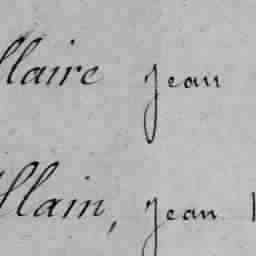 llaire jean
llain, jean